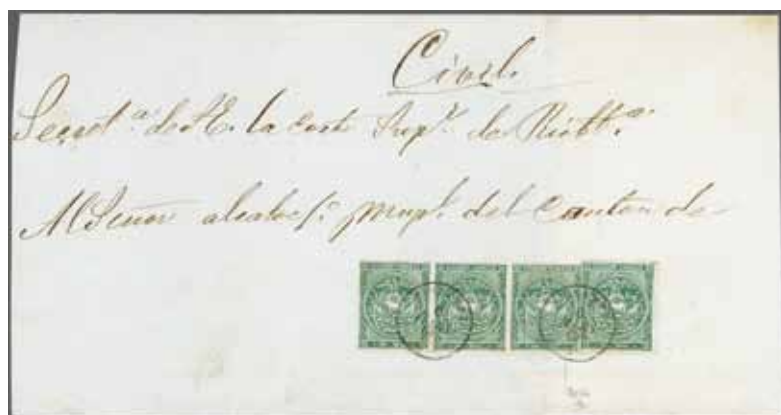 Civil.
Secret.ª de S.E. la corte Sup.r de Riobb.ª
Al Señor alcalde 1.º mupl. del canton de